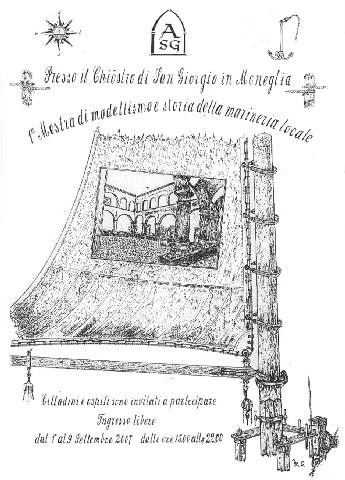 A
SG
Presso il Chiostro di San Giorgio in Moneglia
1ª Mostra di modellismo e storia della marineria locale
Cittadini e ospiti sono invitati a partecipare
Ingresso libero
dal 1 al 9 Settembre 2007 dalle ore 15.00 alle 22.00
M.C.